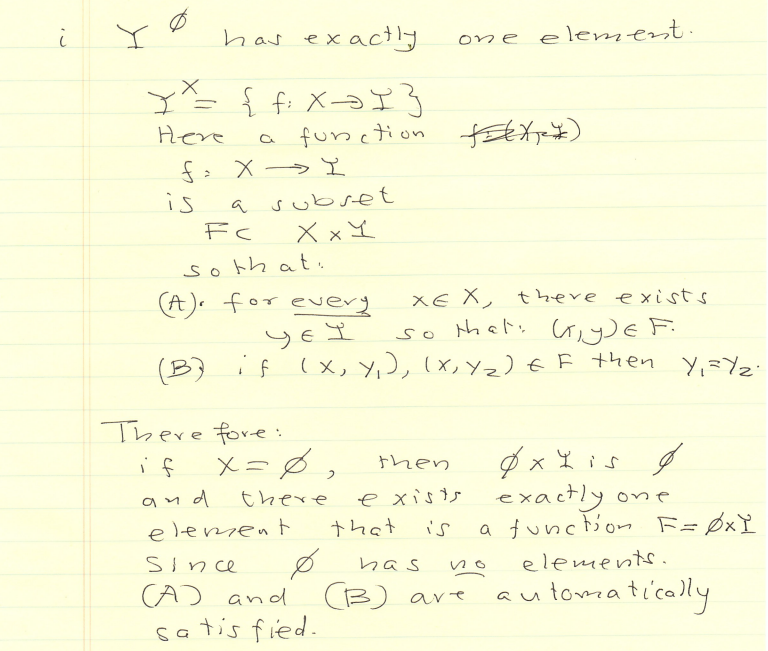 i Y^∅ has exactly one element.
Y^X = { f: X → Y }
Here a function
f: X → Y
is a subset
F ⊂ X × Y
so that:
(A). for every x ∈ X, there exists
y ∈ Y so that: (x,y) ∈ F.
(B) if (x, y₁), (x, y₂) ∈ F then y₁ = y₂.
Therefore:
if X = ∅, then ∅ × Y is ∅
and there exists exactly one
element that is a function F = ∅ × Y
Since ∅ has no elements.
(A) and (B) are automatically
satisfied.